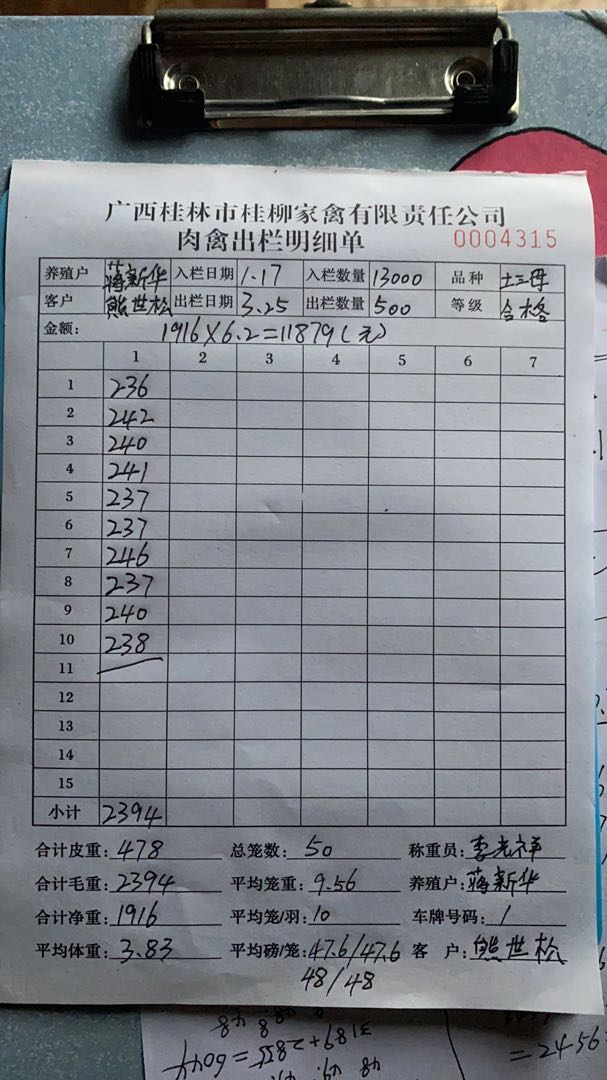 广西桂林市桂柳家禽有限责任公司
肉禽出栏明细单 0004315
养殖户 蒋新华 入栏日期 1.17 入栏数量 13000 品种 土三丹
客户 熊世松 出栏日期 3.25 出栏数量 500 等级 合格
金额: 1916×6.2=11879(元)
1 2 3 4 5 6 7
1 236
2 242
3 240
4 241
5 237
6 237
7 246
8 237
9 240
10 238
11
12
13
14
15
小计 2394
合计皮重: 478 总笼数: 50 称重员: 李光祥
合计毛重: 2394 平均笼重: 9.56 养殖户: 蒋新华
合计净重: 1916 平均笼/羽: 10 车牌号码: /
平均体重: 3.83 平均磅/笼: 47.6/47.6 客 户: 熊世松
48/48
3189+2855=6044
=2456